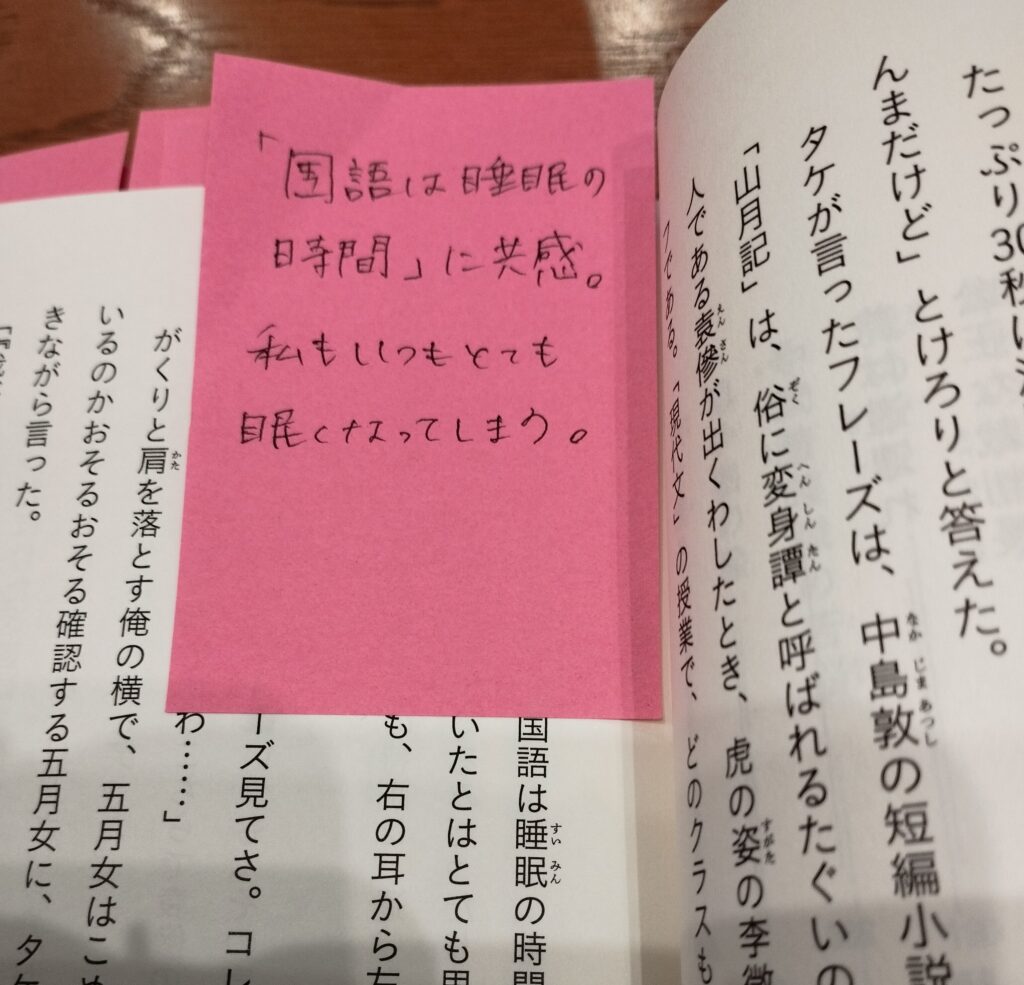 たっぷり30秒
んまだけど」とけろりと答えた。
タケが言ったフレーズは、中島敦の短編小説
「山月記」は、俗に変身譚と呼ばれるたぐいの
人である袁傪が出くわしたとき、虎の姿の李徴
フである。「現代文」の授業で、どのクラスも
「国語は睡眠の
時間」に共感。
私もいつもとても
眠くなってしまう。
国語は睡眠の時間
いたとはとても思
も、右の耳から左
ーズ見てさ。コレ
わ……」
がくりと肩を落とす俺の横で、五月女はこめ
いるのかおそるおそる確認する五月女に、タケ
きながら言った。